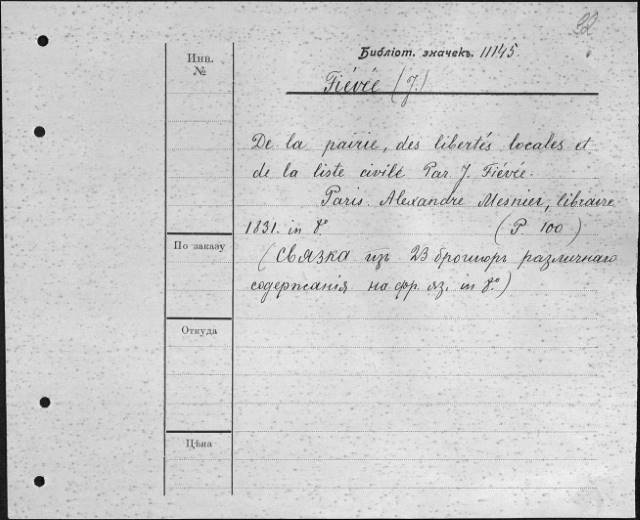 32
Библіот. значекъ. 11145.
Инв. №
Fiévée (J.)
De la pairie, des libertés locales et
de la liste civile Par J. Fiévée.
Paris. Alexandre Mesnier, libraire
1831. in 8º (P 100)
По заказу
(Связка изъ 23 брошюръ различнаго
содержанія на фр. яз. in 8º)
Откуда
Цѣна